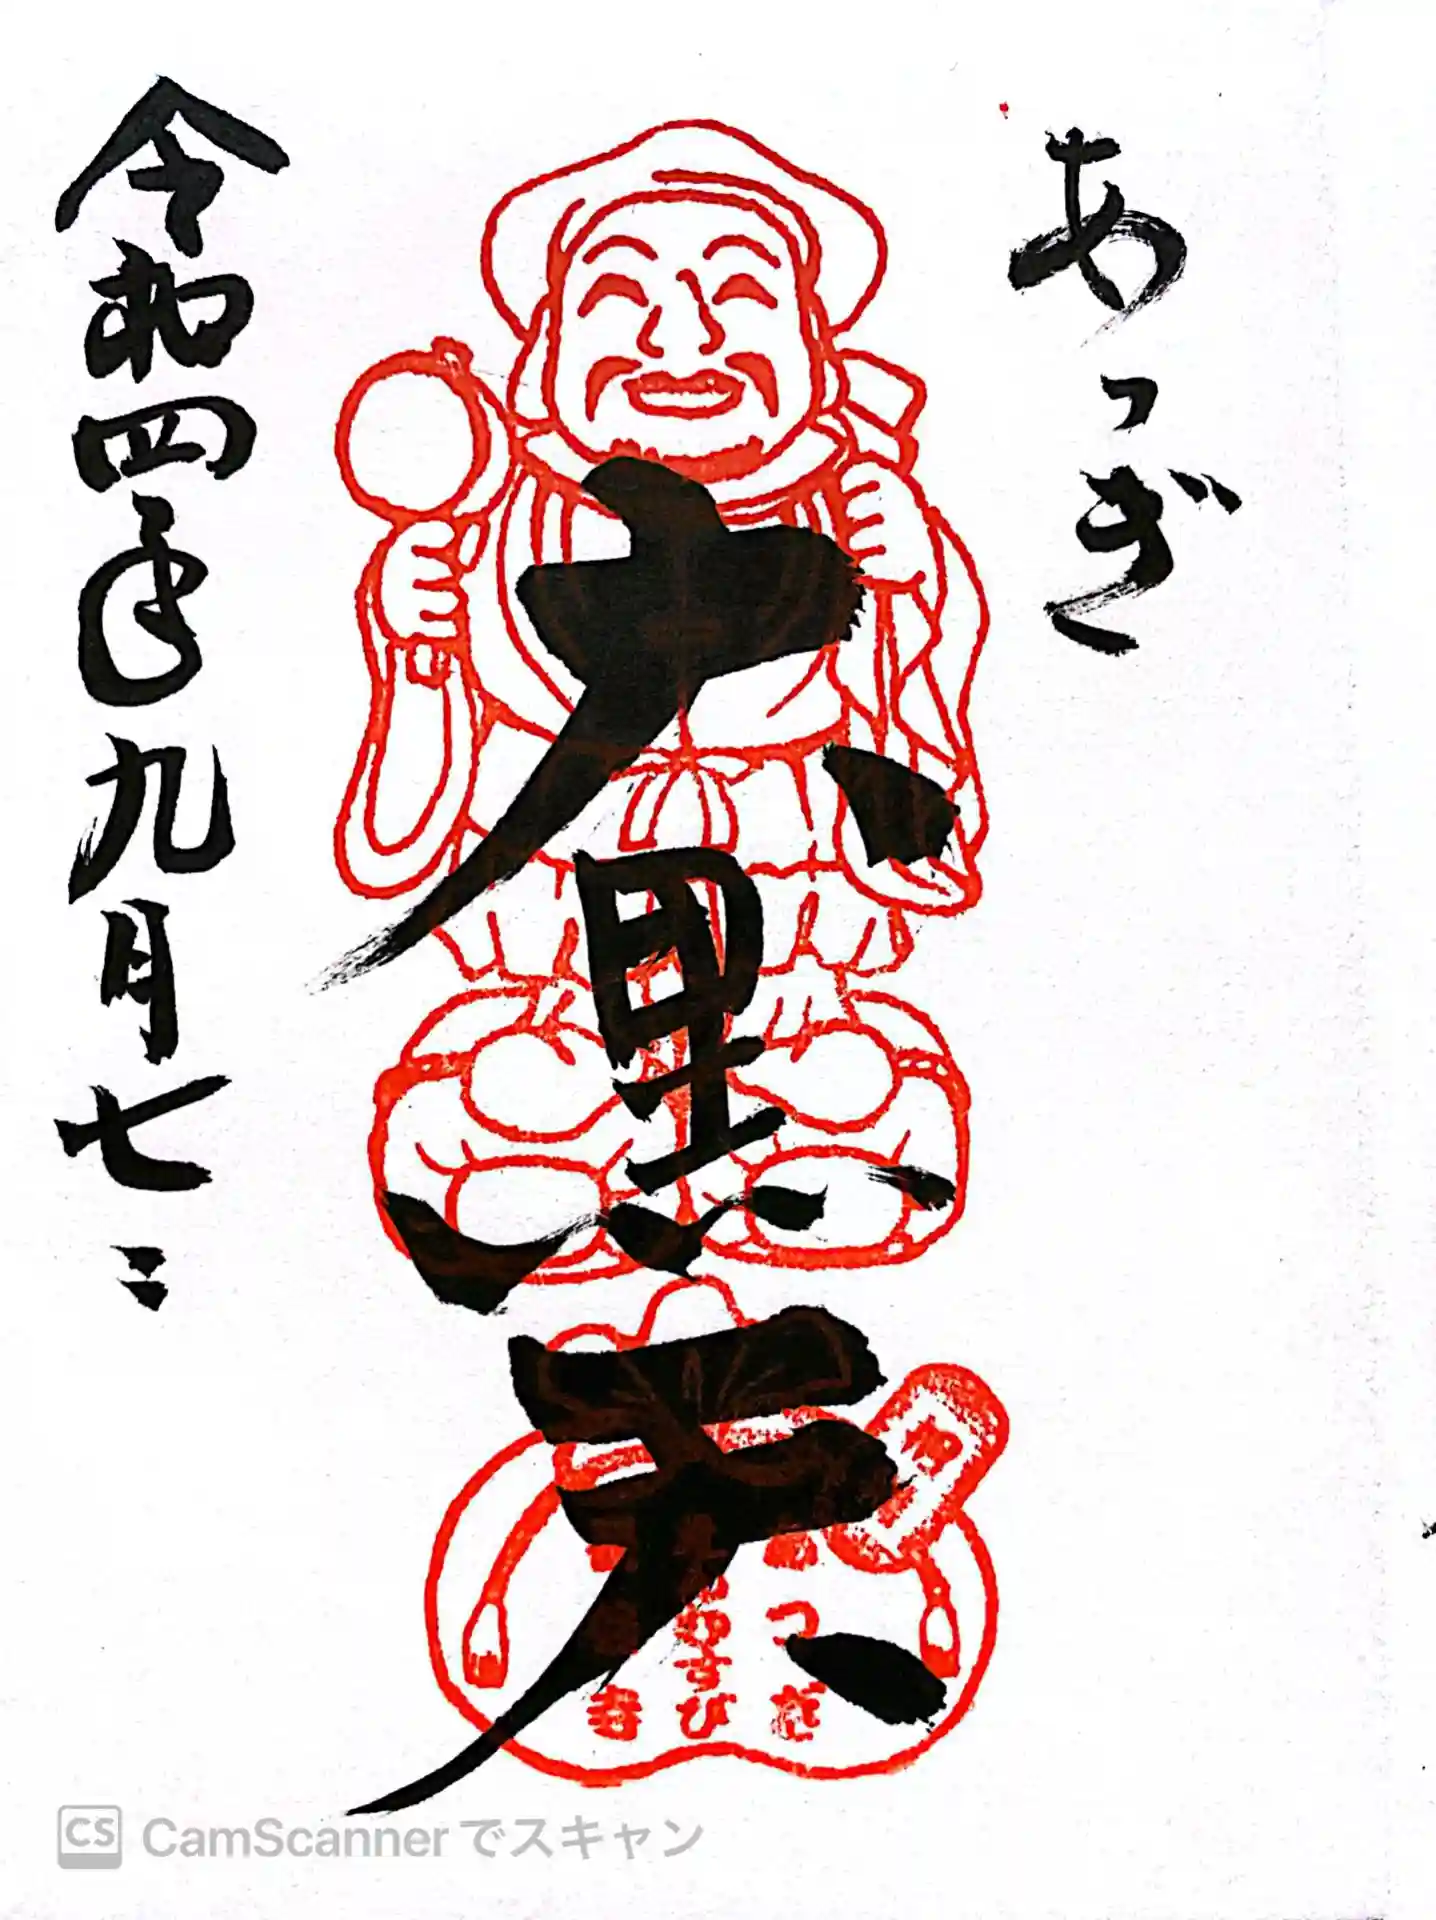 あつぎ
大黒天
令和四年九月七日
つ
むすび
寺
CS CamScannerでスキャン